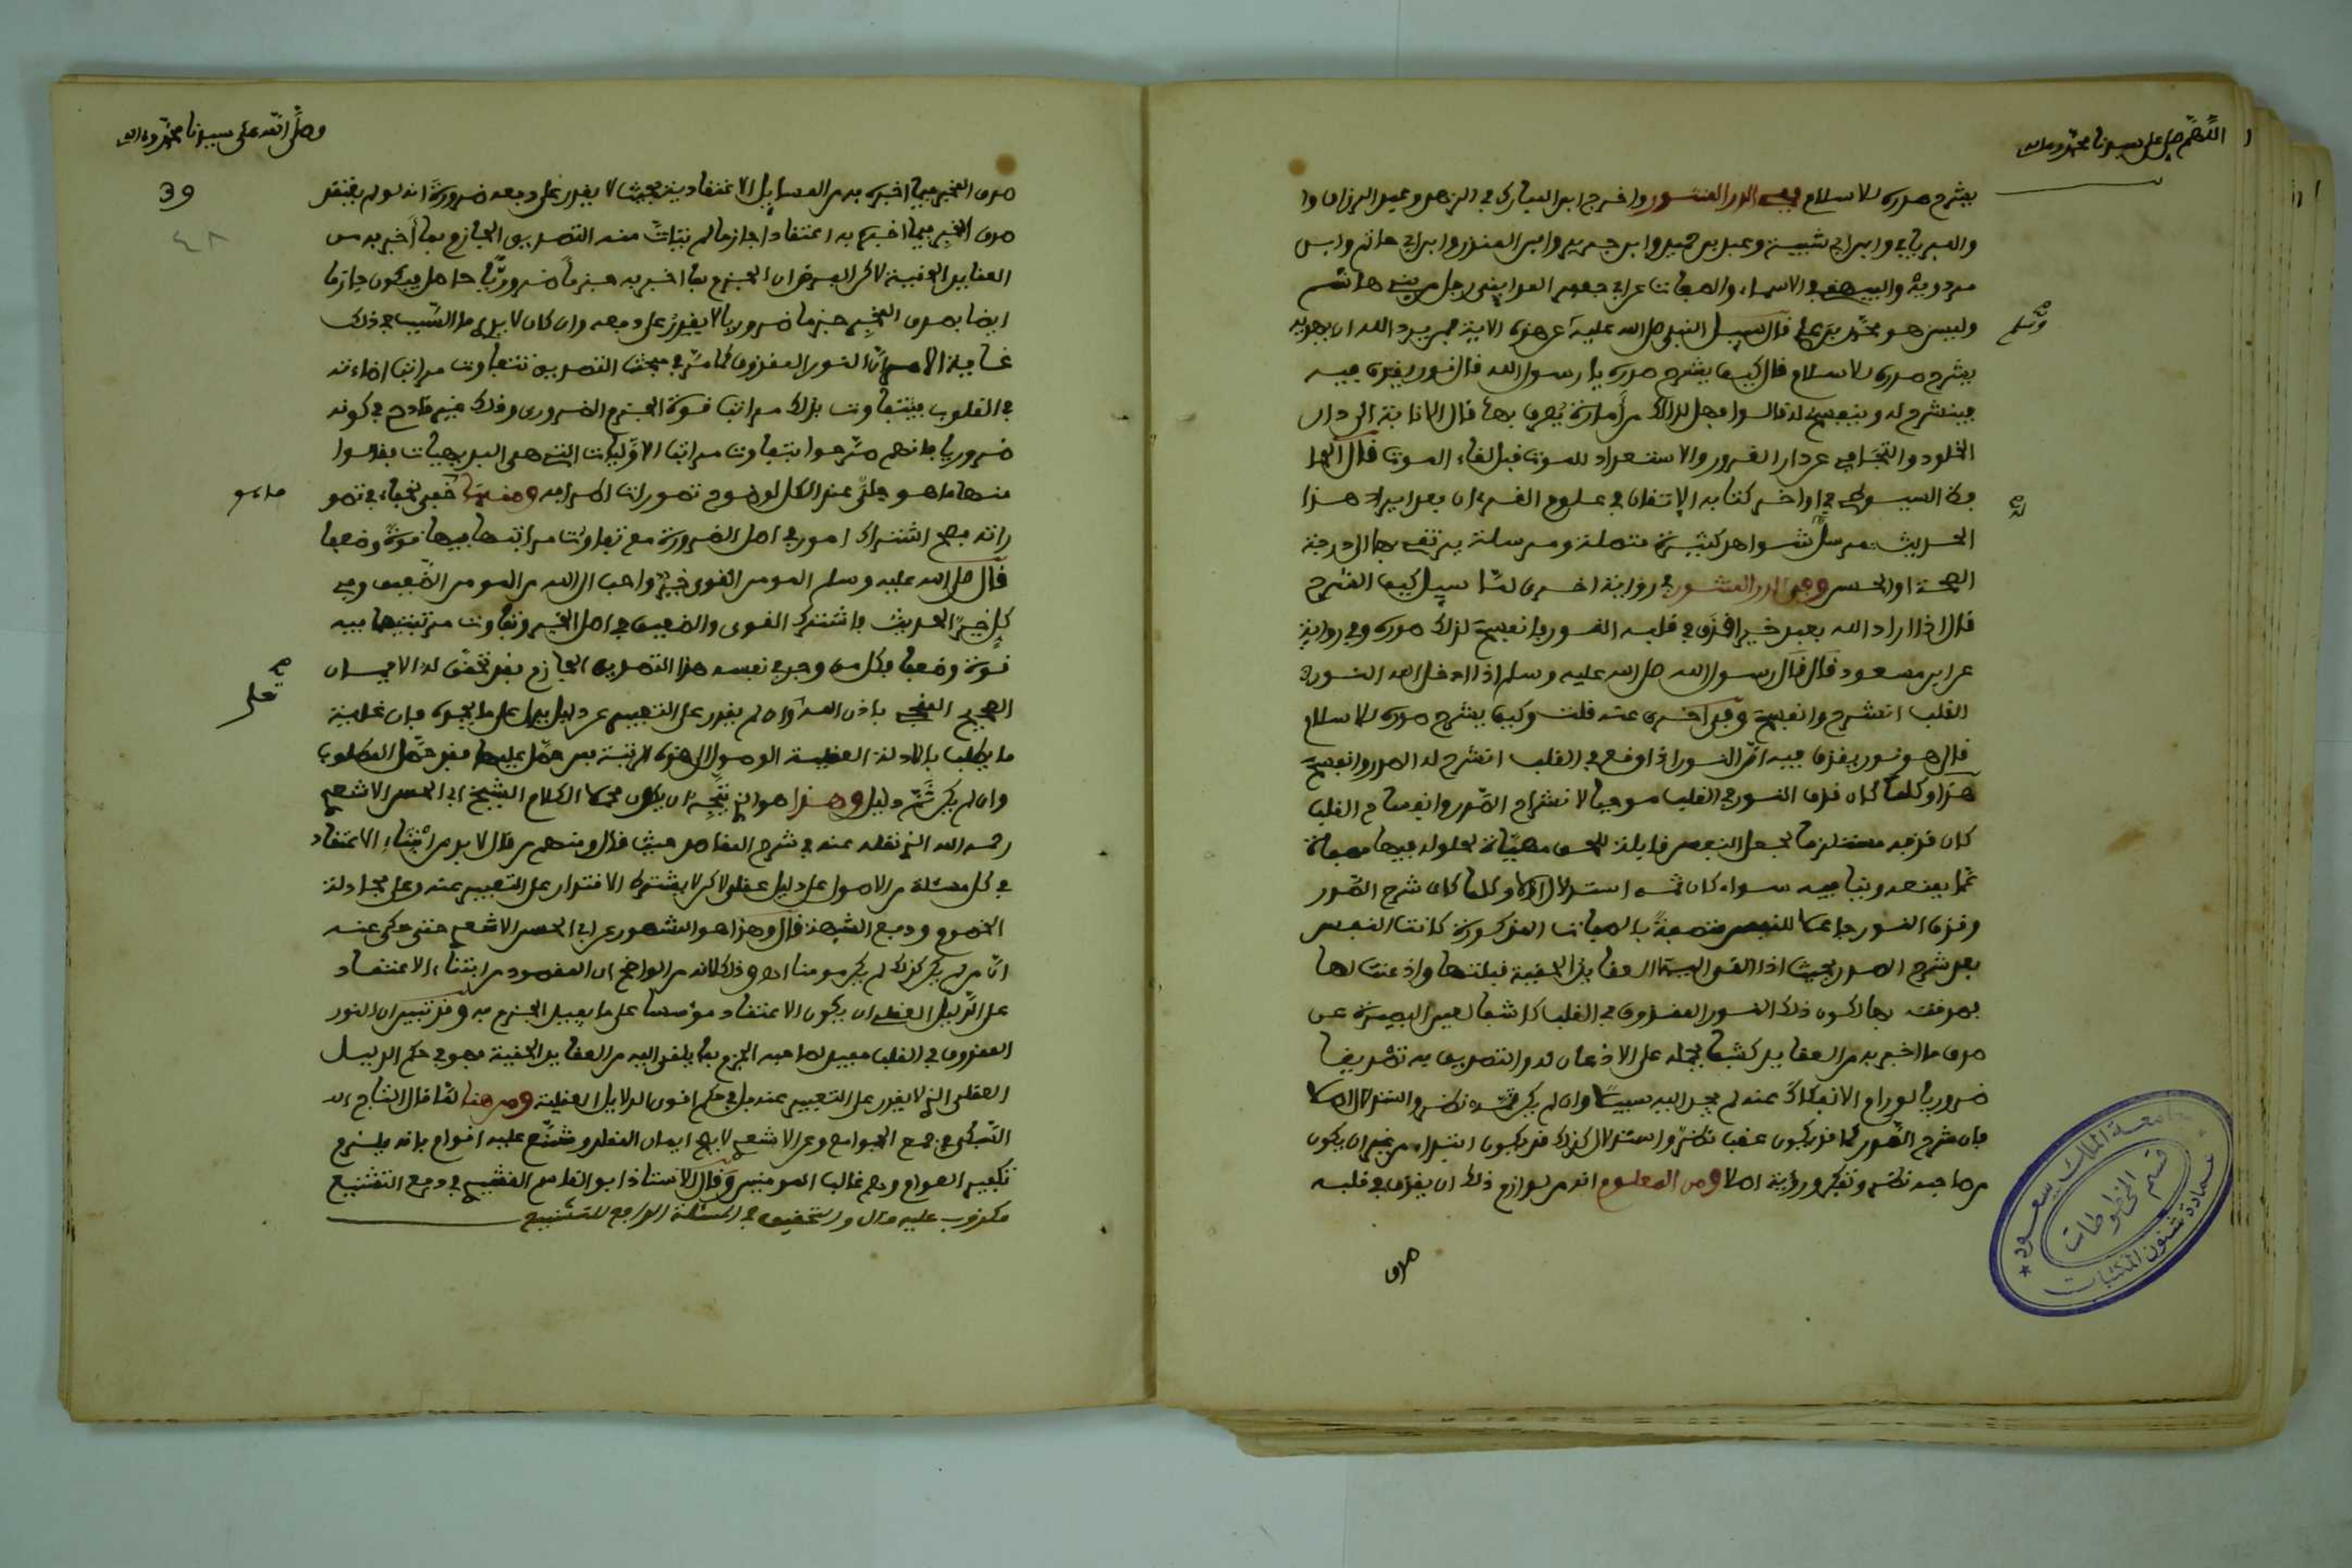 اللهم صل على سيدنا محمد وءاله
يشرح صدره للاسلام وفي الدر المنثور واخرج ابن المبارك في الزهد وعبد الرزاق وا
والفريابي وابن ابي شيبة وعبد بن حميد وابن جرير وابن المنذر وابن ابي حاتم وابن
مردويه والبيهقي في الاسماء والصفات عن ابي جعفر المدايني رجل من بني هاشم
وليس هو محمد بن علي قال سيل النبي صلى الله عليه عن هذه الاية فمن يرد الله ان يهديه
وسلم
يشرح صدره للاسلام قال كيف يشرح صدره يا رسول الله قال نور يقذف فيه
فينشرح له وينفسح له قالوا فهل لذلك من أمارة يعرف بها قال الانابة الى دار
الخلود والتجافي عن دار الغرور والاستعداد للموت قبل لقاء الموت قال الحا
فظ السيوطي في اواخر كتابه الاتقان في علوم القرءان بعد ايراد هذا
الحديث مرسل شواهد كثيرة متصلة ومرسلة يرتقي بها الى درجة
له
الصحة او الحسن وفي الدر المنثور في رواية اخرى لما سيل كيف الشرح
قال اذا اراد الله بعبد خيرا قذف في قلبه النور فانفسح لذلك صدره وفي رواية
عن ابن مسعود قال قال رسول الله صلى الله عليه وسلم اذا ادخل الله النور
القلب انشرح وانفسح وفي اخرى عنه قلت وكيف يشرح صدره للاسلام
قال هو نور يقذف فيه ان النور اذا وقع في القلب انشرح له الصدر وانفسح
هذا وكلما كان قذف النور في القلب موجبا لانشراح الصدر وانفساح القلب
كان قذفه مستلزما لجعل النفس قابلة للحق مهيأة لحلوله فيها مصفاة
عما يمنعه وينافيه سواء كان ثمه استدلال ام لا وكلما كان شرح الصدر
وقذف النور جاعلا للنفس متصفة بالصفات المذكورة كانت النفس
بعد شرح الصدر بحيث اذا القي اليها العقايد الحقية قبلتها واذعنت لها
بصرفته بها لكون ذلك النور المقذوف في القلب كاشفا لعين البصيرة عن
صدق ما اخبر به من العقايد كشفا يحمله على الاذعان له والتصديق به تصديقا
ضروريا لو رام الانفكاك عنه لم يجد اليه سبيلا وان لم يكن ثمه نظر واستدلال اصلا
فان شرح الصدر كما قد يكون عقب نظر واستدلال كذلك قد يكون ابتداء من غير ان يكون
من صاحبه نظر وتفكر وروية اصلا ومن المعلوم انه من لوازم ذلك ان يقذف في قلبه
صدق
جامعة الملك سعود
قسم المخطوطات
عمادة شئون المكتبات
وصلى الله على سيدنا محمد وءاله
39
٤٨
صدق المخبر فيما اخبره به من المسايل الاعتقادية بحيث لا يقدر على دفعه ضرورة انه لو لم يعتقد
صدق المخبر فيما اخبره به اعتقادا جازما لم يتأت منه التصديق الجازم بما أخبر به من
العقايد الحقية لاكن الفرض ان الجزم بما اخبر به جزما ضروريا حاصل فيكون جازما
ايضا بصدق المخبر جزما ضروريا لا يقدر على دفعه وان كان لا يدري ما السبب في ذلك
غاية الامر ان النور المقذوف كما مر في مبحث التصديق تتفاوت مراتب اضاءته
في القلوب فيتفاوت بذلك مراتب قوة الجزم الضروري وذلك غير قادح في كونه
ضروريا فانهم صرحوا بتفاوت مراتب الاوليات التي هي البديهيات فقالوا
منها ما هو جلي عند الكل لوضوح تصورات اطرافه ومنها خفي لخفاء في تصو
ما هو
راته فصح اشتراك امور في اصل الضرورة مع تفاوت مراتبها فيها قوة وضعفا
قال صلى الله عليه وسلم المومن القوي خير واحب الى الله من المومن الضعيف وفي
كل خير الحديث فاشترك القوي والضعيف في اصل الخير وتفاوت مرتبتيهما فيه
قوة وضعفا فكل من وجد في نفسه هذا التصديق الجازم فقد تحقق له الايمان
الصحيح المنجي باذن الله وان لم يقدر على التعبير عن دليل يدل على ما يجده فان غاية
تعلى
ما يطلب بالادلة العقلية الوصول الى هذه المرتبة فمن حصل عليها فقد حصل المطلوب
وان لم يكن ثم دليل وهذا هو الذي يتجه ان يكون محملا لكلام الشيخ ابي الحسن الاشعري
رحمه الله الذي نقله عنه في شرح المقاصد حيث قال ومنهم من قال لا بد من ابتناء الاعتقاد
في كل مسئلة من الاصول على دليل عقلي لاكن لا يشترط الاقتدار على التعبير عنه وعلى مجادلة
الخصوم ودفع الشبهة قال وهذا هو المشهور عن ابي الحسن الاشعري حتى حكي عنه
ان من لم يكن كذلك لم يكن مومنا اه وذلك لانه من الواضح ان المقصود من ابتناء الاعتقاد
على الدليل العقلي ان يكون الاعتقاد مؤسسا على ما يفيد الجزم به وقد تبين ان النور
المقذوف في القلب مفيد لصاحبه الجزم بما يلقى اليه من العقايد الحقية فهو في حكم الدليل
العقلي الذي لا يقدر على التعبير عنه بل في حكم اقوى الدلايل العقلية ومن هنا لما قال التاج ابن
السبكي في جمع الجوامع وعن الاشعري لا يصح ايمان المقلد وشنع عليه اقوام بانه يلزم
تكفير العوام وهم غالب المومنين وقال الاستاذ ابو القاسم القشيري في دفع التشنيع
مكذوب عليه قال والتحقيق في المسئلة الدافع للتشنيع